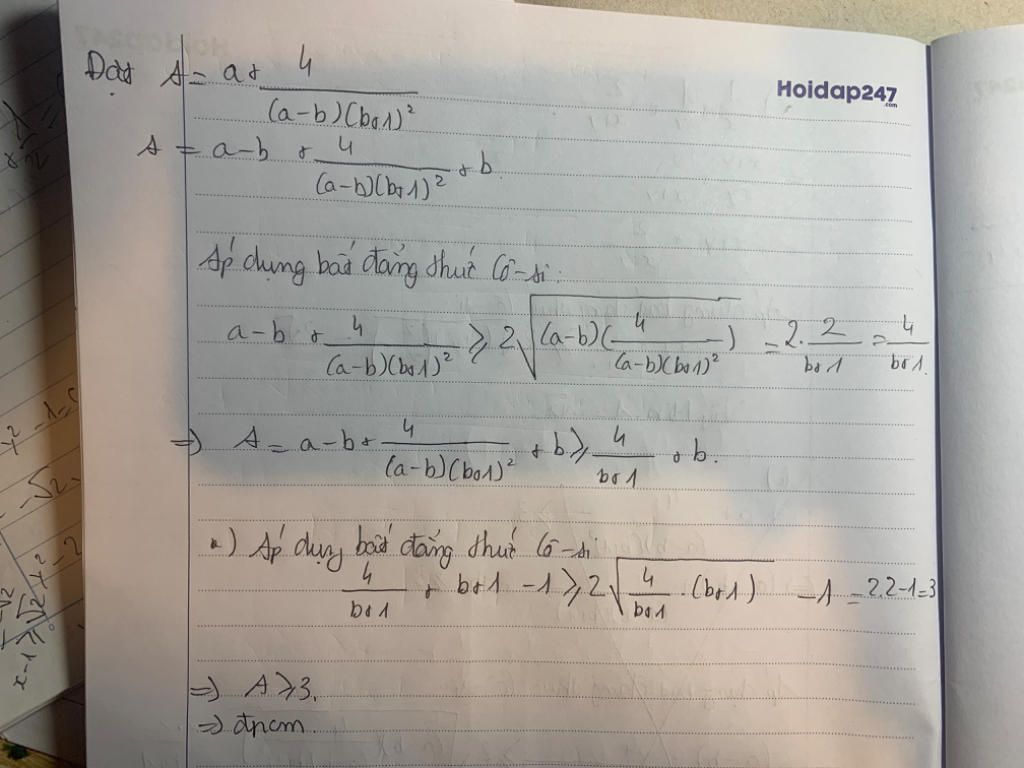 Đặt A = a + 4/((a-b)(b+1)²)
Hoidap247
.com
A = a-b + 4/((a-b)(b+1)²) + b
Áp dụng bất đẳng thức Cô-si:
a-b + 4/((a-b)(b+1)²) ≥ 2√((a-b)(4/((a-b)(b+1)²))) = 2.2/(b+1) = 4/(b+1).
=> A = a-b + 4/((a-b)(b+1)²) + b ≥ 4/(b+1) + b.
*) Áp dụng bất đẳng thức Cô-si
4/(b+1) + b+1 -1 ≥ 2√(4/(b+1) . (b+1)) -1 = 2.2-1=3
=> A ≥ 3.
=> đpcm